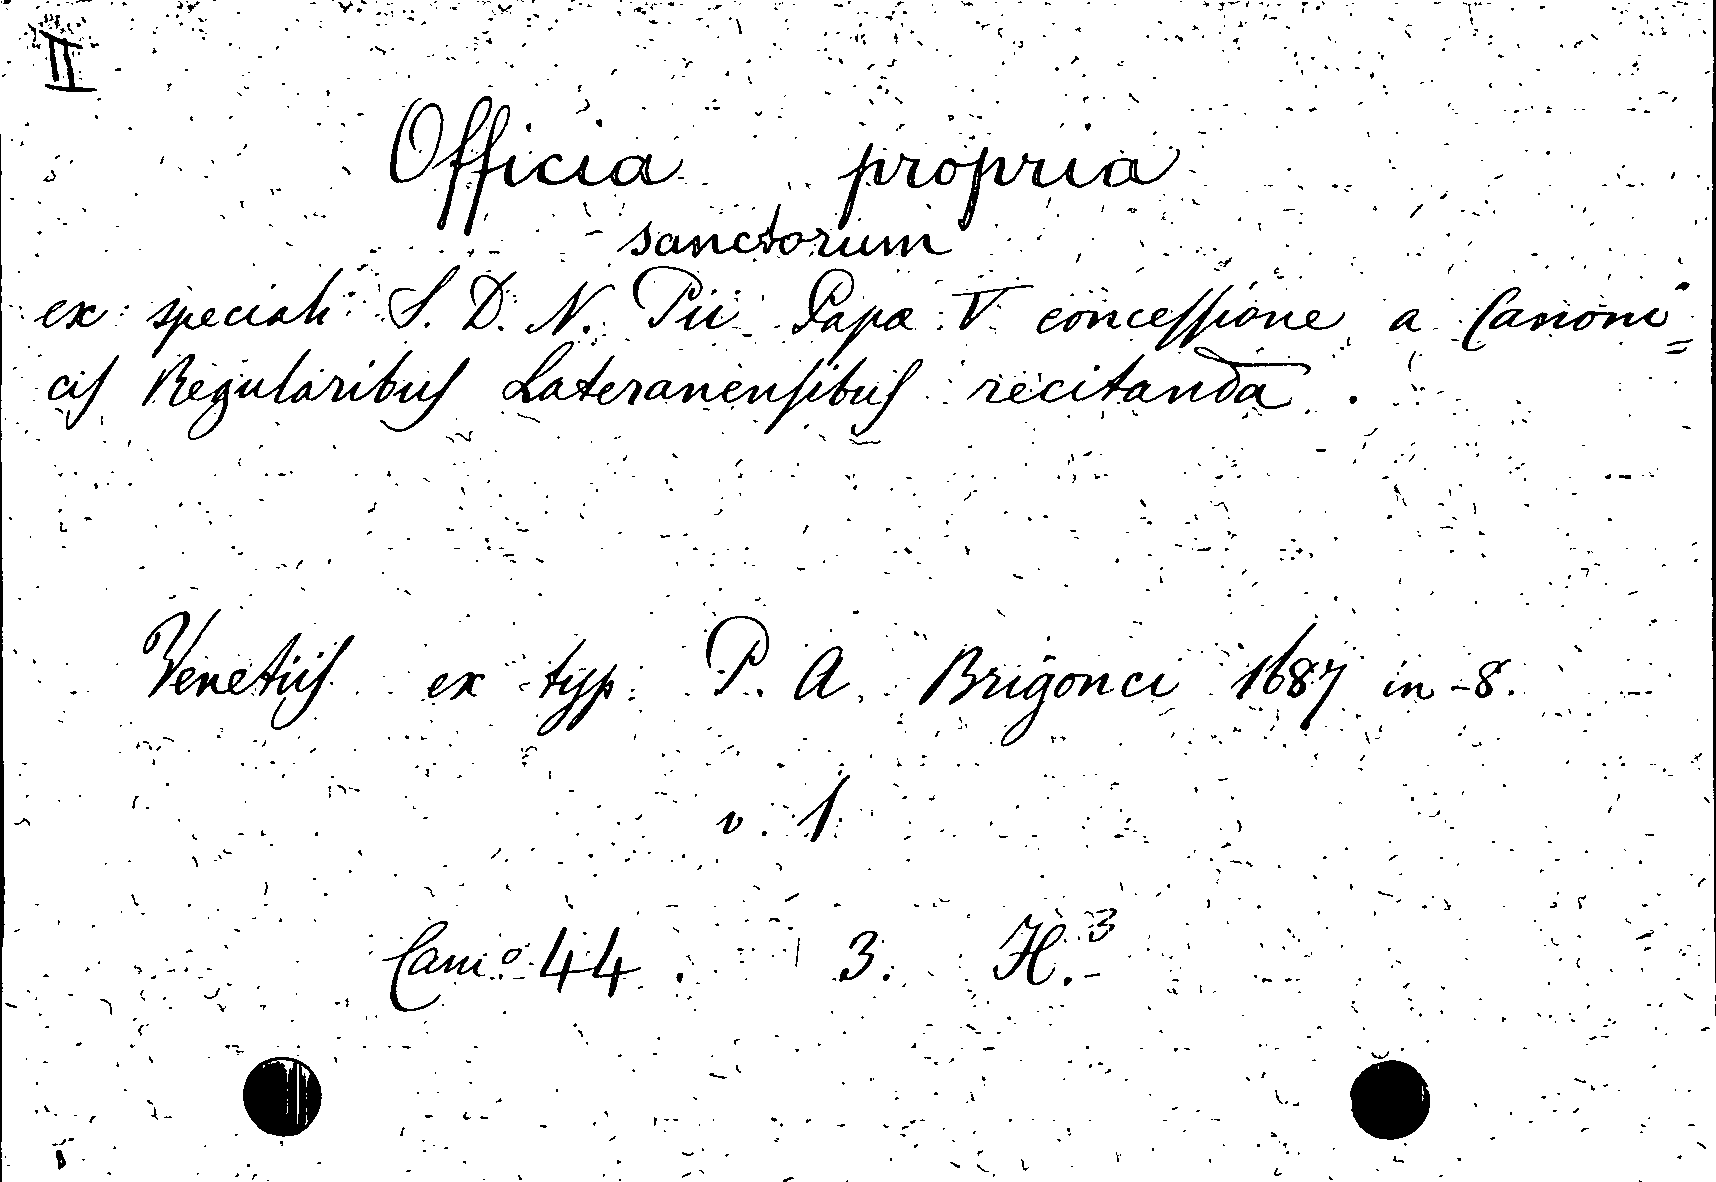 II
Officia propria
sanctorum
ex speciali S. D. N. Pii Papæ V concessione a Canoni=
cis Regularibus Lateranensibus recitanda.
Venetiis ex typ. P. A. Brigonci 1687 in-8.
v. 1
Cam.º 44. 3. H.³